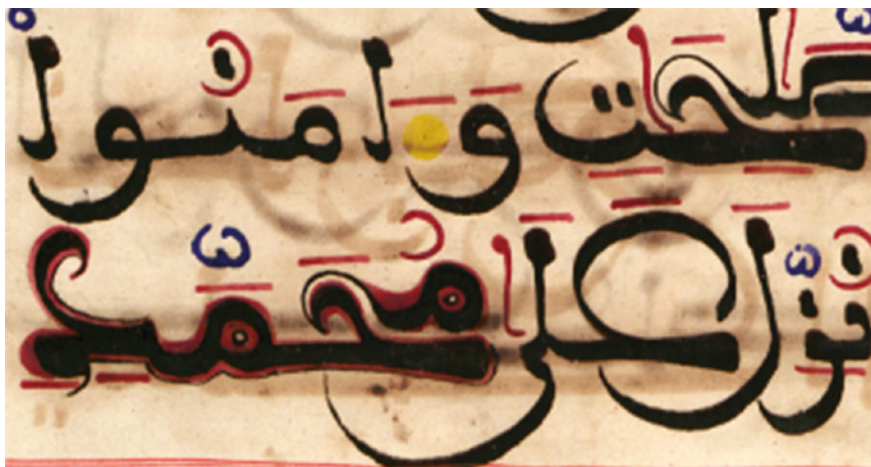 صَّٰلِحَٰتِ وَءَامَنُواْ
نُزِّلَ عَلَىٰ مُحَمَّدٍ